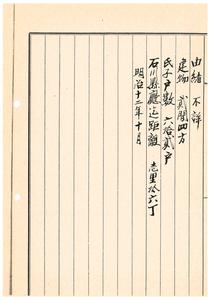 由緒 不詳
建物 貳間四方
氏子戸數 六拾貳戸
石川縣廳迄距離 壱里拾六丁
明治十二年十月